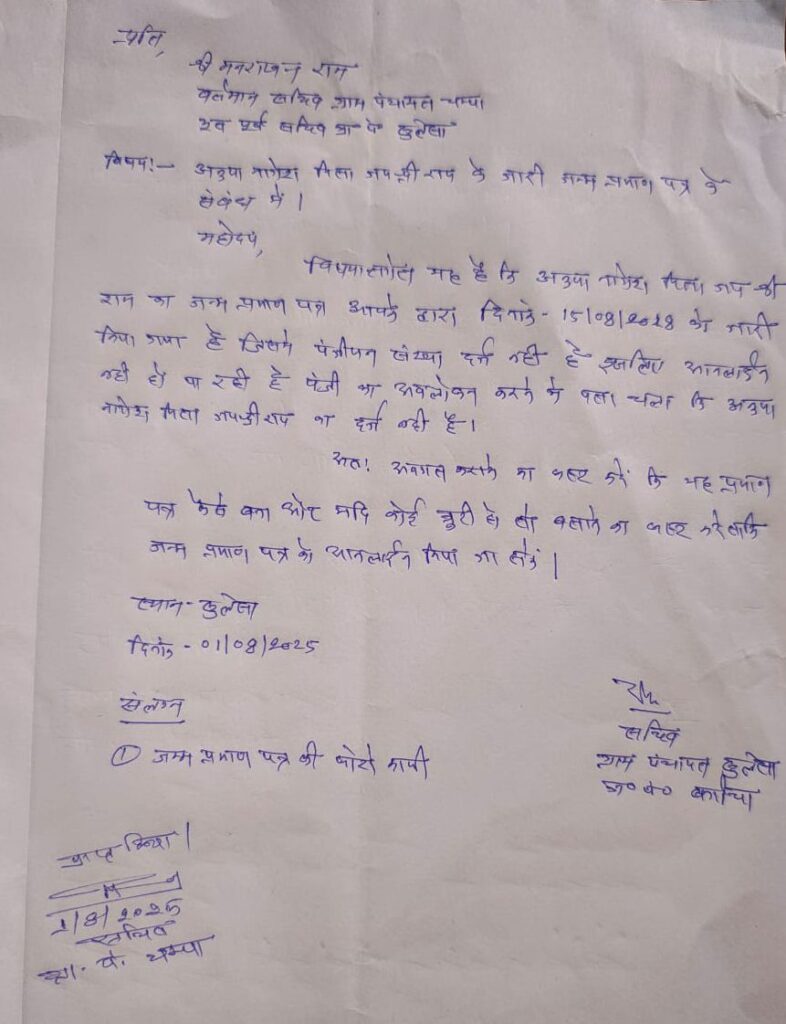 प्रति,
श्री मनराखन राम
वर्तमान सचिव ग्राम पंचायत चम्पा
एवं पूर्व सचिव ग्रा पं डुलेसा
विषय:- नागेश पिता जयश्री राम के जारी जन्म प्रमाण पत्र के
संबंध में।
महोदय,
विषयान्तर्गत यह है कि नागेश पिता जय श्री
राम का जन्म प्रमाण पत्र आपके द्वारा दिनांक - 15/08/2028 को जारी
किया गया है जिसमें पंजीयन संख्या दर्ज नही है इसलिए आनलाईन
नही हो पा रही है पंजी का अवलोकन करने के पता चला कि
नागेश पिता जयश्री राम का दर्ज नही है।
अतः अवगत कराने का कष्ट करें कि यह प्रमाण
पत्र कैसे बना और यदि कोई त्रुटी हो तो बताने का कष्ट करें ताकि
जन्म प्रमाण पत्र को आनलाईन किया जा सके।
स्थान - डुलेसा
दिनांक - 01/08/2025
संलग्न
① जन्म प्रमाण पत्र की फोटो कापी
सचिव
ग्राम पंचायत डुलेसा
ज० प०
प्राप्त किया।
1/8/2025
सचिव
ग्रा. पं. चम्पा